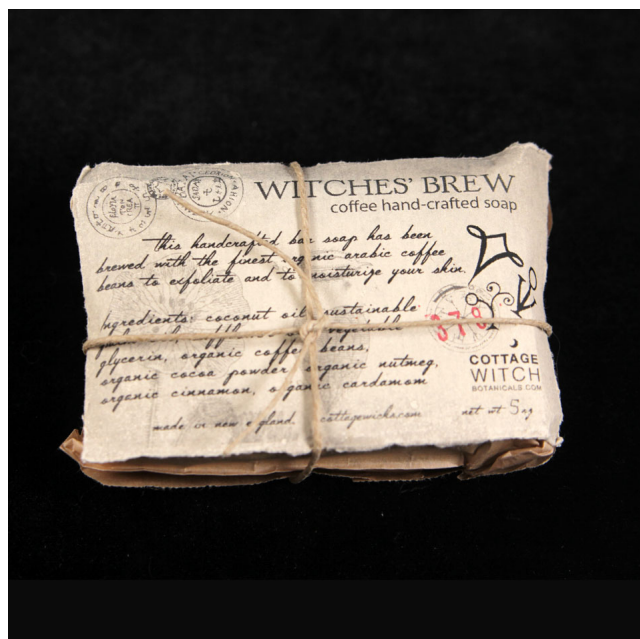 WITCHES' BREW
coffee hand-crafted soap
this handcrafted bar soap has been
brewed with the finest organic arabic coffee
beans to exfoliate and to moisturize your skin.
Ingredients: coconut oil, sustainable
glycerin, organic coffee beans,
organic cocoa powder, organic nutmeg,
organic cinnamon, organic cardamom
made in new england. cottagewicks.com
378
COTTAGE
WITCH
BOTANICALS.COM
net wt 5